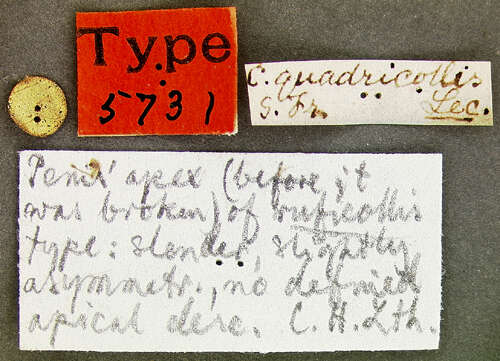 Type
5731
C. quadricollis
S. Fr. Lec.
Penis' apex (before it
was broken) of ruficollis
type: slender, slightly
asymmetr., no defined
apical desc. C. H. Lth.